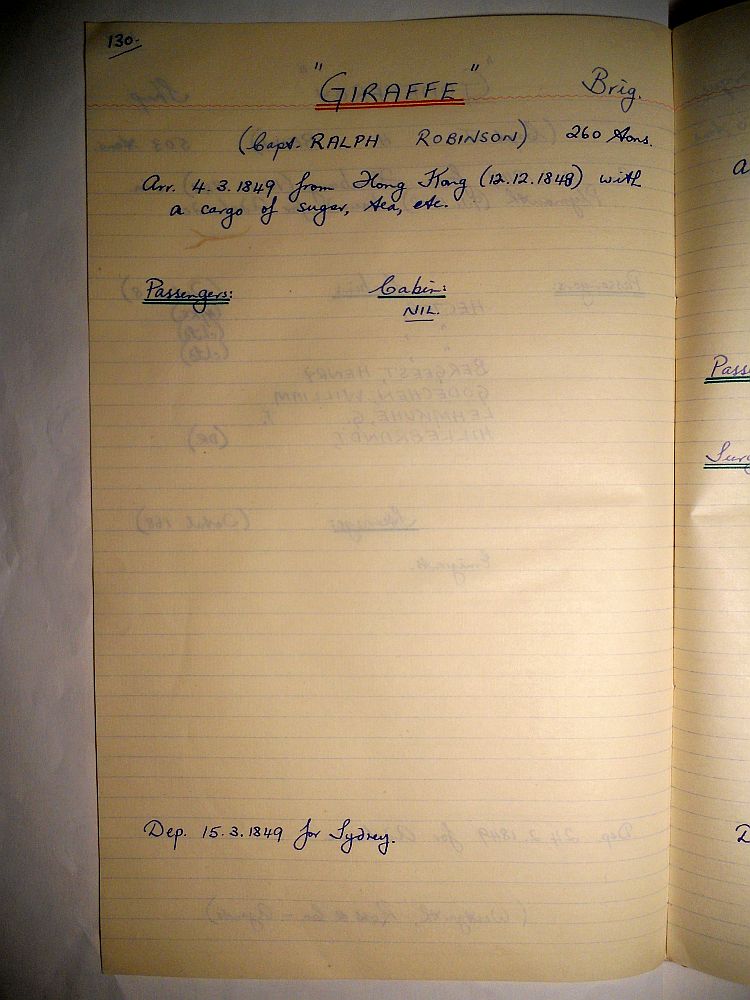 130.
"GIRAFFE" Brig.
(Capt. RALPH ROBINSON) 260 tons.
Arr. 4.3.1849 from Hong Kong (12.12.1848) with
a cargo of sugar, tea, etc.
Passengers: Cabin:
NIL.
Dep. 15.3.1849 for Sydney.